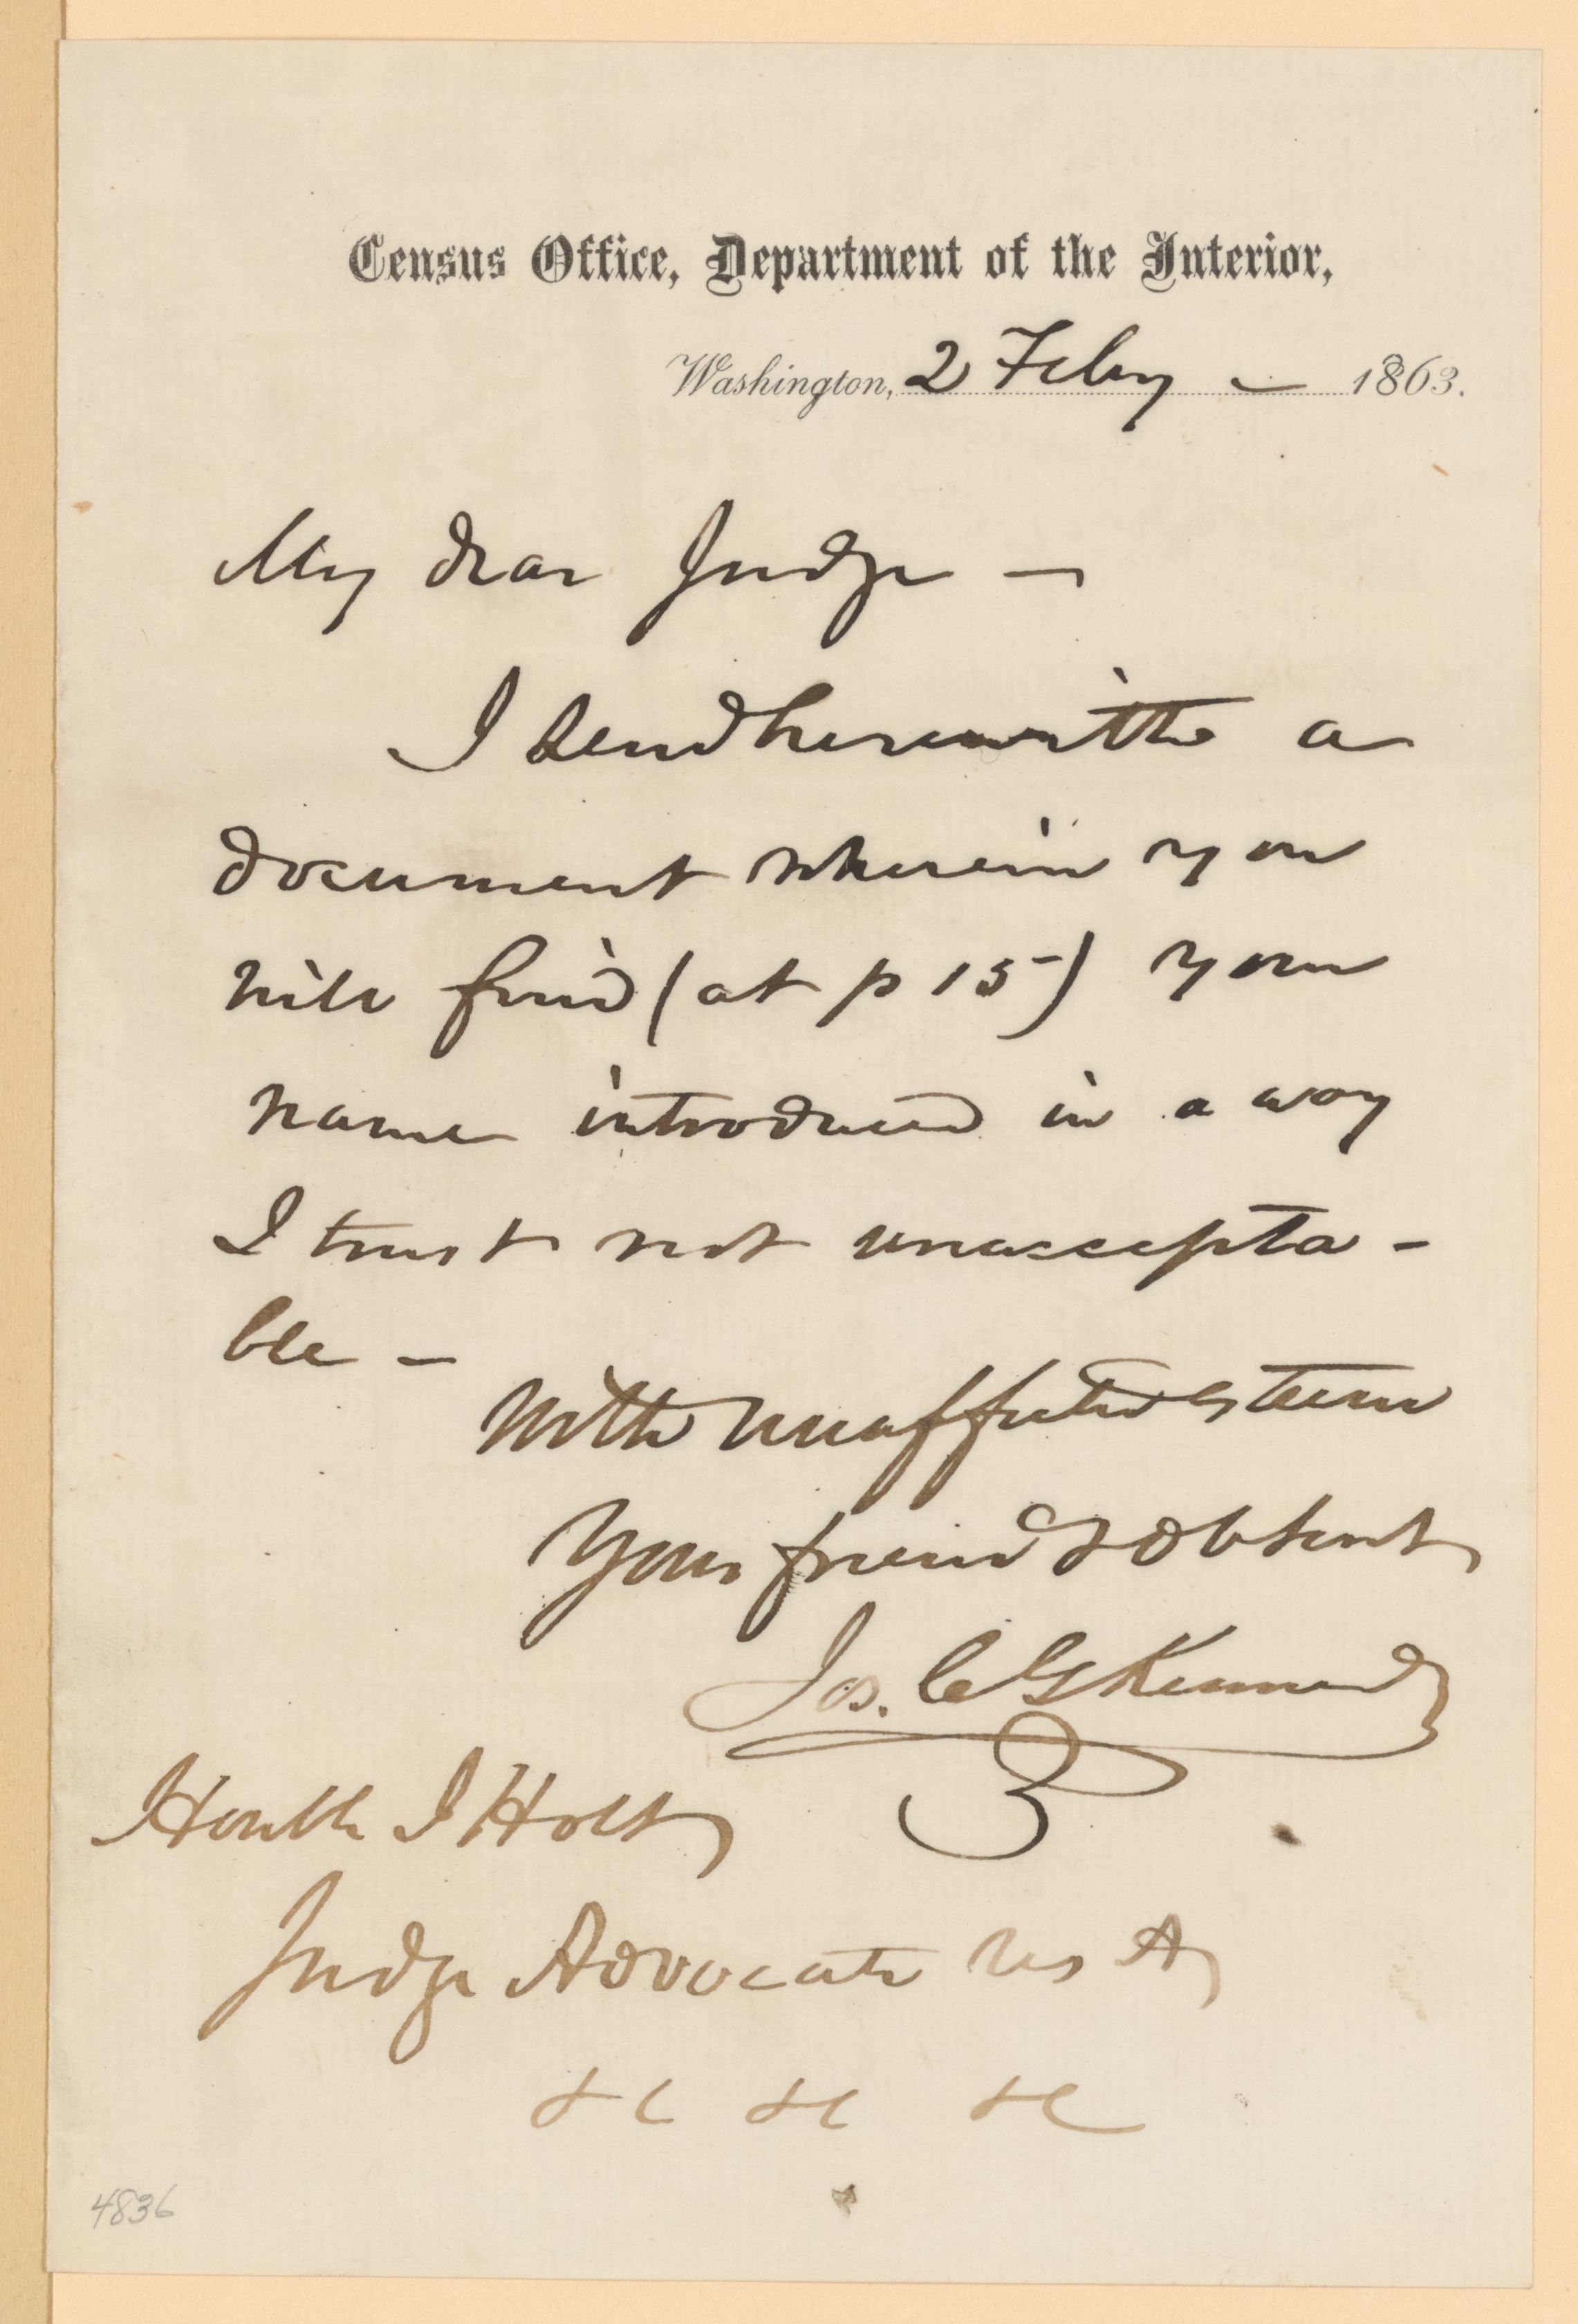 Census Office, Department of the Interior,
Washington, 2 Feby — 1863.
My dear Judge —
I send herewith a
document wherein you
will find (at p 15) your
name introduced in a way
I trust not unaccepta-
ble —
With unaffected esteem
Your friend & ob servt
Jos. C G Kennedy
Honble J Holt
Judge Advocate US A
&c &c &c
4836